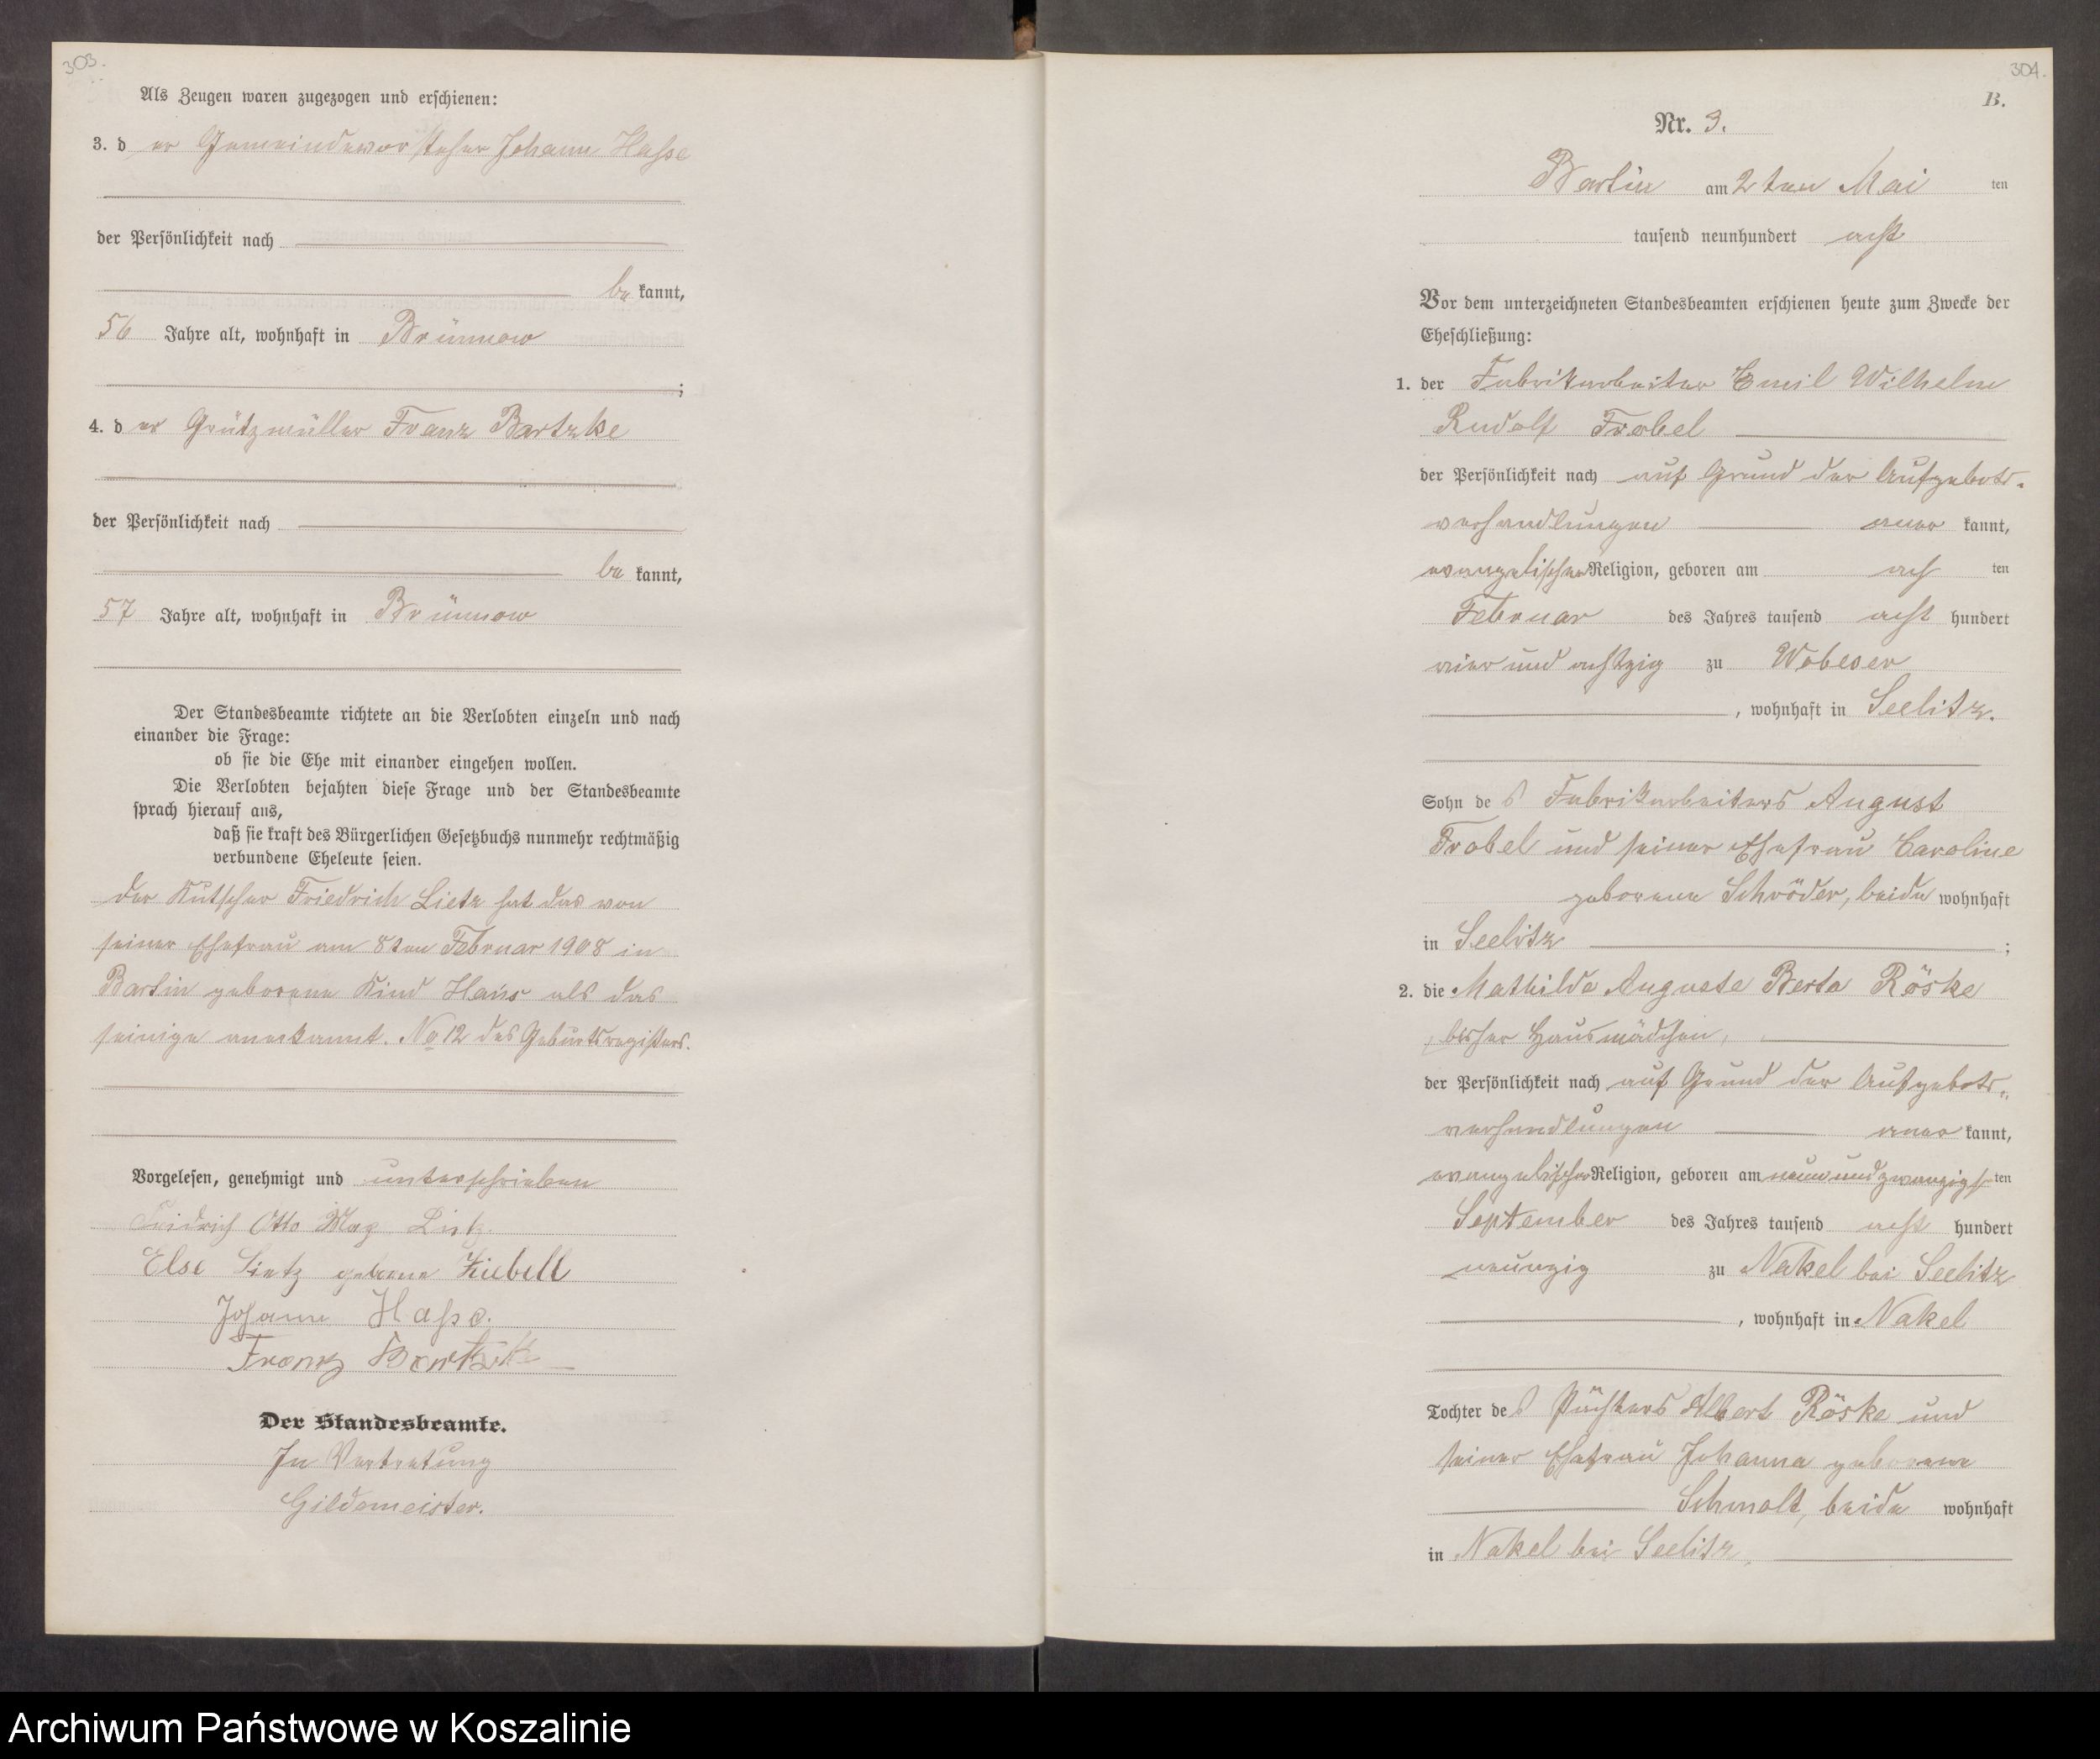 303.
Als Zeugen waren zugezogen und erschienen:
3. d er Gemeindevorsteher Johann Hasse
der Persönlichkeit nach
be kannt,
56 Jahre alt, wohnhaft in Brünnow
;
4. d er Grützmüller Franz Bartzke
der Persönlichkeit nach
be kannt,
57 Jahre alt, wohnhaft in Brünnow
Der Standesbeamte richtete an die Verlobten einzeln und nach
einander die Frage:
ob sie die Ehe mit einander eingehen wollen.
Die Verlobten bejahten diese Frage und der Standesbeamte
sprach hierauf aus,
daß sie kraft des Bürgerlichen Gesetzbuchs nunmehr rechtmäßig
verbundene Eheleute seien.
Der Kutscher Friedrich Lietz hat das von
seiner Ehefrau am 8ten Februar 1908 in
Bartin geborene Kind Hans als das
seinige anerkannt. No 12 des Geburtsregisters.
Vorgelesen, genehmigt und unterschrieben
Friedrich Otto Max Lietz.
Else Lietz geborene Ziebell
Johann Hasse.
Franz Bartzke
Der Standesbeamte.
In Vertretung
Gildemeister.
304.
B.
Nr. 3.
Bartin am 2ten Mai ten
tausend neunhundert acht
Vor dem unterzeichneten Standesbeamten erschienen heute zum Zwecke der
Eheschließung:
1. der Fabrikarbeiter Emil Wilhelm
Rudolf Trobel
der Persönlichkeit nach auf Grund der Aufgebots-
verhandlungen aner kannt,
evangelischer Religion, geboren am ten
Februar des Jahres tausend acht hundert
vier und achtzig zu Wobeser
, wohnhaft in Seelitz.
Sohn de s Fabrikarbeiters August
Trobel und seiner Ehefrau Caroline
geborene Schröder, beide wohnhaft
in Seelitz ;
2. die Mathilde Auguste Berta Röske
, bisher Hausmädchen,
der Persönlichkeit nach auf Grund der Aufgebots-
verhandlungen aner kannt,
evangelischer Religion, geboren am neunundzwanzigs ten
September des Jahres tausend acht hundert
neunzig zu Nakel bei Seelitz
, wohnhaft in Nakel
Tochter de s Pächters Albert Röske und
seiner Ehefrau Johanna geborene
Schmolt, beide wohnhaft
in Nakel bei Seelitz,
Archiwum Państwowe w Koszalinie